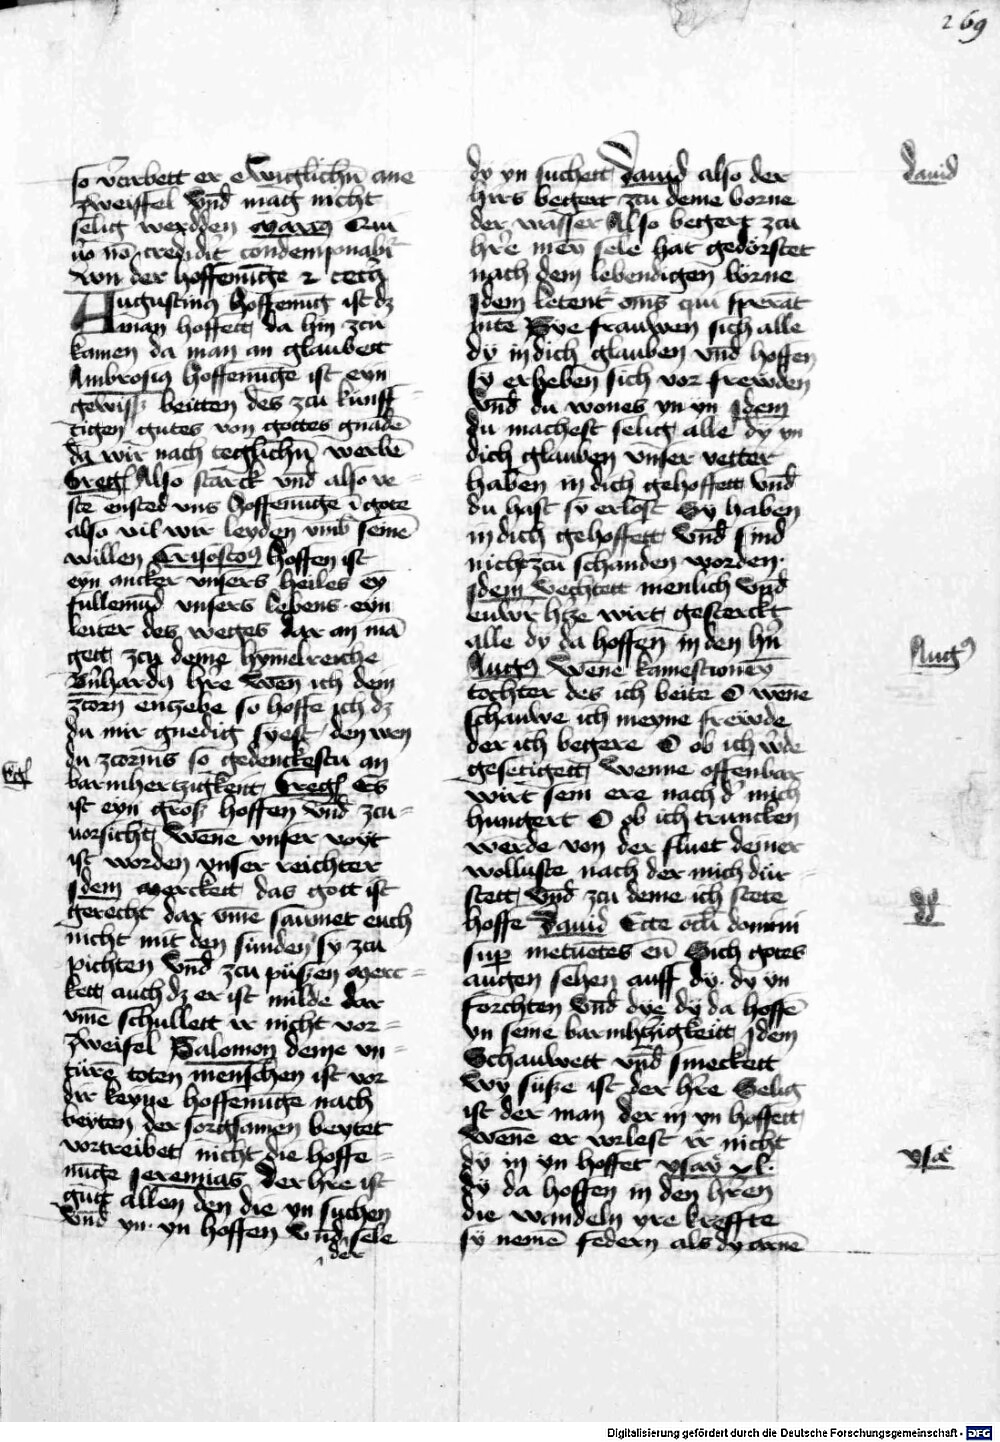 269
so v̄terbett er ewiglichn̄ ane
zweiffel Vnd mag nicht
selig werdden marcꝫ Qui
v̄o nō credidit condempnabr̄
Von der hoffenūge ⁊ tech
Augustinꝰ Hoffenug ist dz
man hoffett da hin zcu
kamen da man an glaubett
Ambrosiꝰ Hoffenūge ist eyn
gewissz beitten des zcu kunff
tigen gutes von gottes gnadē
da wir nach teglichn̄ werbē
Greg Also starck vnd also ve
ste ensted vns hoffenūge ī gote
also vil wir leyden vmb seinē
willen Crisostoꝰ Hoffen ist
eyn ancker vnsers heiles ey
fullemūd vnsers lebens eyn
leiter des weges dar an mā
gett zcu deme hymelreiche
Bn̄hardꝰ hr̄e wen ich dein
zcorn entzebe so hoffe ich dz
du mir gnedig syest den wen
du zcornis so gedenckestu an
Greg
barmhertzigkeit Greg Es
ist eyn grosz hoffen vnd zcu
uorsicht wēne vnser voyt
ist worden vnser reichter
Idem Merckett das gott ist
gerecht dar vm̄e saumet euch
nicht mit den sunden sy zcu
pichten Vnd zcu püszen Merc
kett auch dz er ist milde dar
vm̄e schullett ir nicht vor
zweifel Salomon deme vn
türē toten menschen ist vor
dir keyne hoffenūge nach
beyten der sorgsamen beytet
vortreibet nicht die hoffe
nūge Jeremias der hr̄e ist
gutt allen den die yn suchen
Vnd yn yn hoffen Vnd sele
der
dy yn suchett Dauid also der
hirs begert zcu deme borne
der wasser Also begert zcu
hr̄e mey sele hat gedorstet
nach dem lebendigen borne
Idem letent om̄s qui sperat
inte Sye frauwen sich alle
dÿ in dich glauben vnd hoffen
sy erheben sich vor frewden
Vnd du wones yn yn Idem
du machest selig alle dy yn
dich glauben vnser vetter
haben in dich gehoffett vnd
du hast sy erlost Sy haben
in dich gehoffett Vnd sind
nicht zcu schanden worden
Idem Vechtett menlich Vnd
euwr hr̄ze wirt gesterckt
alle dy da hoffen in den hn̄
Augꝰ Wene kamestu
tochter des ich beite O wēne
schauwe ich meyne frewde
der ich begere O ob ich w̄de
gesetigett wenne offenbar
wirt sein ere nach d̄ mich
hungert O ob ich truncken
werde von der fluet deiner
wolluste nach der mich dür
stett Vnd zcu deme ich stete
hoffe Dauid Ecce ocl̄i domini
sup metuētes eū Sich gotes
augen sehen auff dy dy yn
forchten Vnd dye dy da hoffē
yn seine barmhr̄zigkeitt Idem
Schauwett vnd smeckett
wy süsze ist der hr̄e Selig
ist der man der in yn hoffett
wēne er vorlest ir nicht
dÿ in yn hoffet ysaÿ xl
dÿ da hoffen in den hr̄en
die wandeln yre kreffte
sÿ nemē federn als dy arnē
dauid
Augꝰ
ysaē
Digitalisierung gefördert durch die Deutsche Forschungsgemeinschaft - DFG